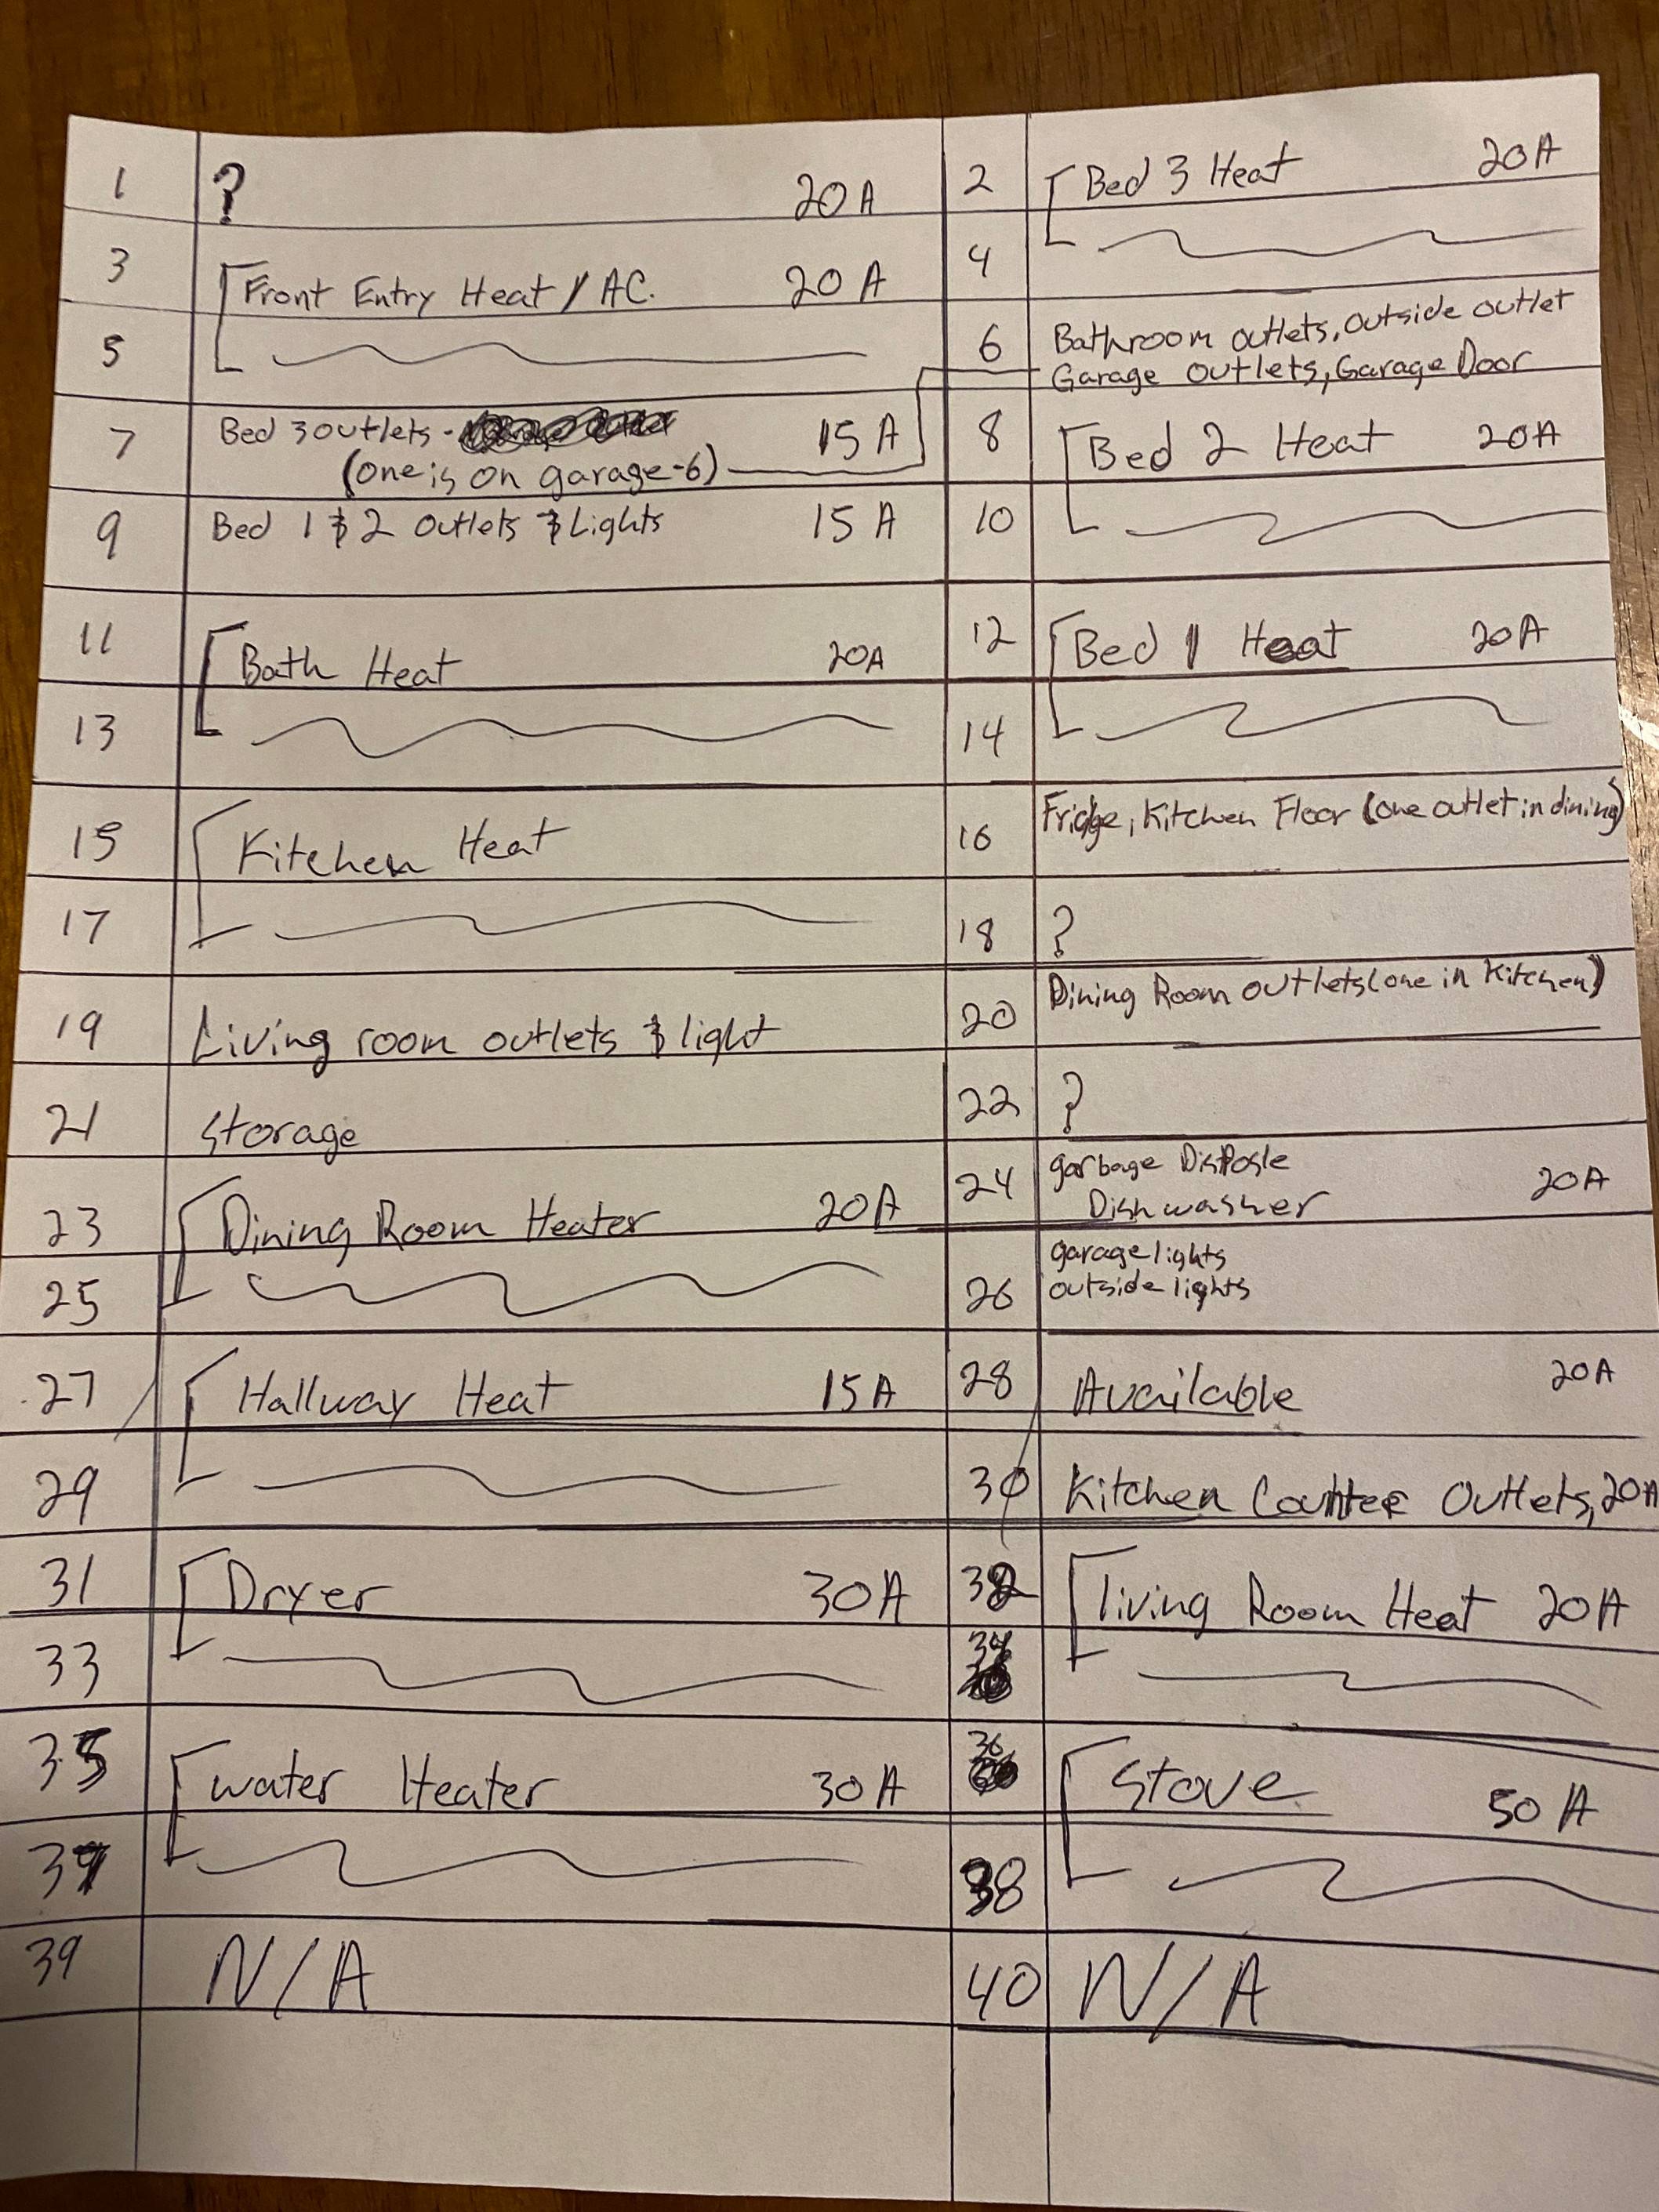 1 ? 20A 2 Bed 3 Heat 20A
3 Front Entry Heat / AC. 20A 4
5 6 Bathroom outlets, outside outlet
Garage outlets, Garage Door
7 Bed 3 outlets - 15 A 8 Bed 2 Heat 20A
(one is on garage-6)
9 Bed 1 & 2 outlets & Lights 15 A 10
11 Bath Heat 20A 12 Bed 1 Heat 20A
13 14
15 Kitchen Heat 16 Fridge, Kitchen Floor (one outlet in dining)
17 18 ?
19 Living room outlets & light 20 Dining Room outlets (one in Kitchen)
21 storage 22 ?
23 Dining Room Heater 20A 24 garbage Disposle
Dishwasher 20A
25 26 garage lights
outside lights
27 Hallway Heat 15A 28 Available 20A
29 30 Kitchen Counter Outlets, 20A
31 Dryer 30A 32 living Room Heat 20A
33 34
35 water Heater 30A 36 Stove 50A
37 38
39 N/A 40 N/A